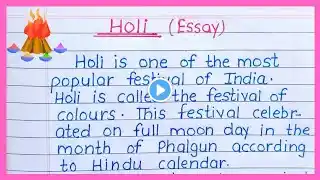 Holi (Essay)
Holi is one of the most
popular festival of India.
Holi is called the festival of
colours. This festival celebr-
ated on full moon day in the
month of Phalgun according
to Hindu calendar.